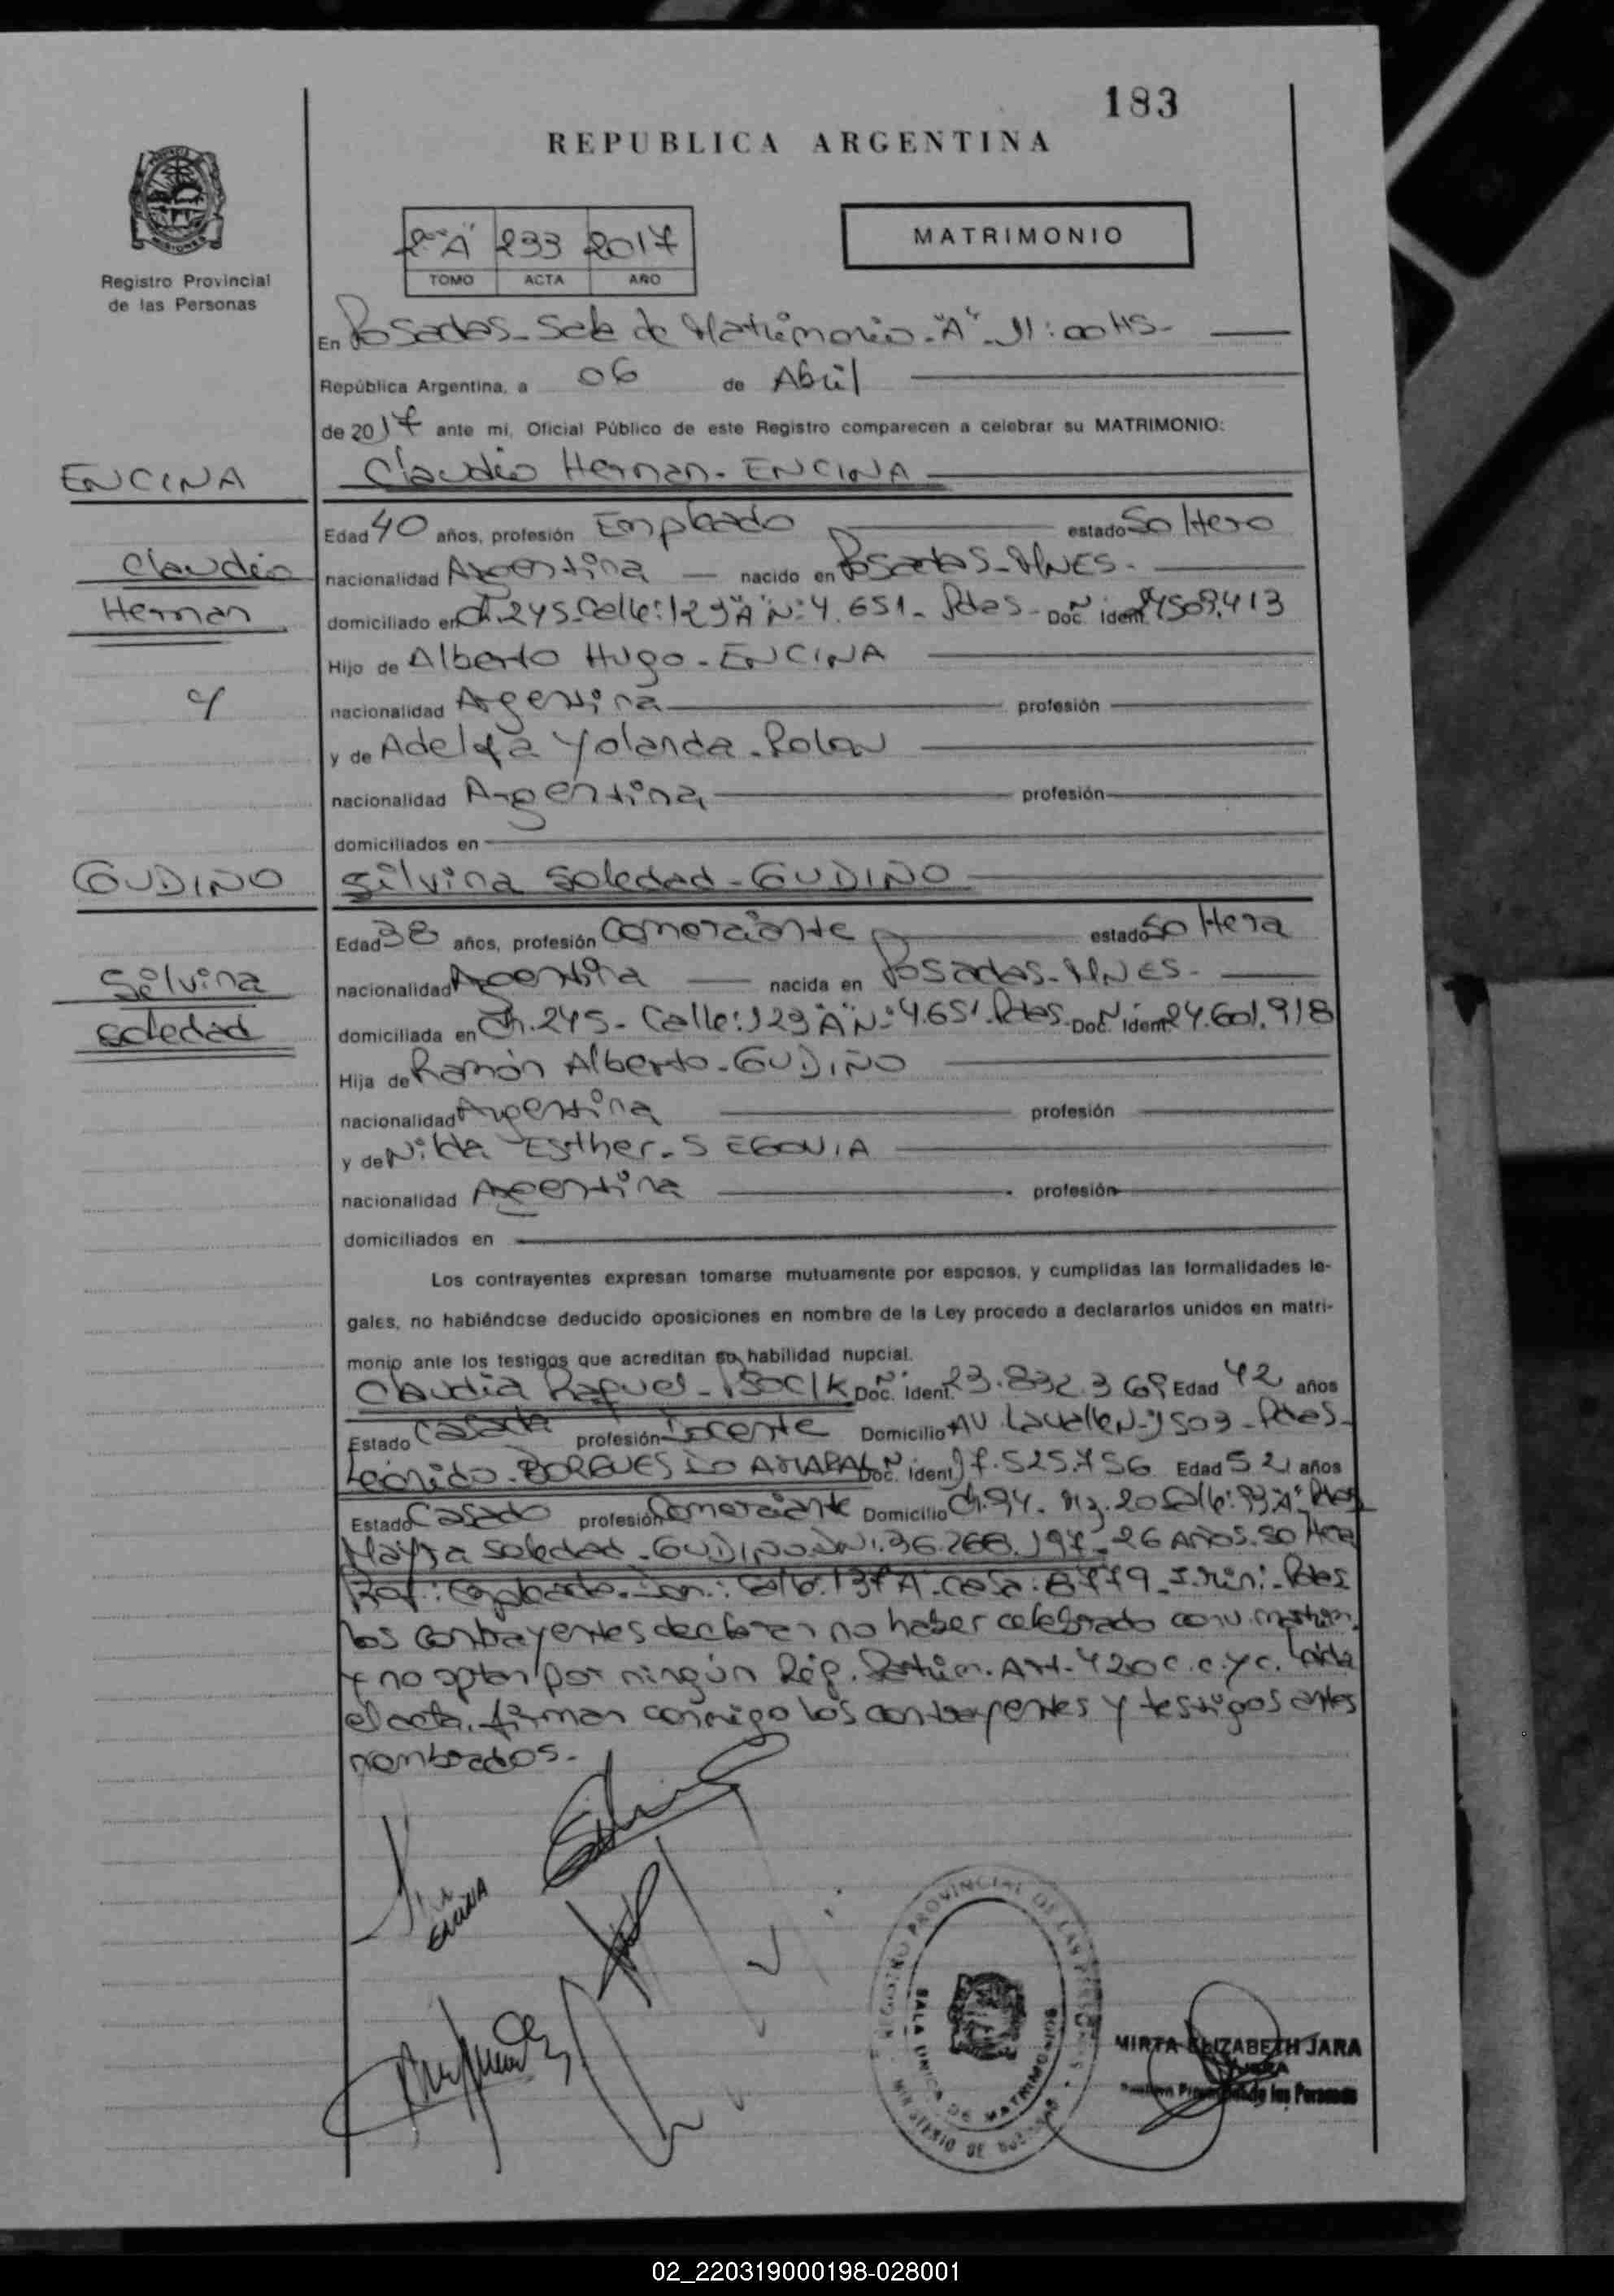 183
REPUBLICA ARGENTINA
2º"A" 233 2017
TOMO ACTA AÑO
MATRIMONIO
Registro Provincial
de las Personas
En Posadas - Sala de Matrimonio - "A" - 11:00 HS -
República Argentina, a 06 de Abril
de 2017 ante mi, Oficial Público de este Registro comparecen a celebrar su MATRIMONIO:
ENCINA
Claudio Hernan - ENCINA
Edad 40 años, profesión Empleado estado Soltero
Claudio
nacionalidad Argentina nacido en Posadas - MNES -
Hernan
domiciliado en Ch. 245 - Calle: 129 "A" Nº 4.651 - Pdas - Doc. Ident.
Hijo de Alberto Hugo - ENCINA
y
nacionalidad Argentina profesión
y de Adelqa Yolanda - Rolon
nacionalidad Argentina profesión
domiciliados en
GUDIÑO
Silvina Soledad - GUDIÑO
Edad 38 años, profesión Comerciante estado Soltera
Silvina
nacionalidad Argentina nacida en Posadas - MNES -
Soledad
domiciliada en Ch. 245 - Calle: 129 "A" Nº 4.651 - Pdas - Doc. Nº Ident. 24.601.918
Hija de Ramón Alberto - GUDIÑO
nacionalidad Argentina profesión
y de Nilda Esther - SEGOVIA
nacionalidad Argentina profesión
domiciliados en
Los contrayentes expresan tomarse mutuamente por esposos, y cumplidas las formalidades le-
gales, no habiéndose deducido oposiciones en nombre de la Ley procedo a declararlos unidos en matri-
monio ante los testigos que acreditan su habilidad nupcial.
Claudia Raquel - Doc. Nº Ident. 23.832.369 Edad 42 años
Estado Casada profesión Docente Domicilio AV. Lavalle Nº 1503 - Pdas -
Leonido - BORGUES DO AMARAL Doc. Nº Ident. 17.525.756 Edad 52 años
Estado Casado profesión Comerciante Domicilio Ch. 94 - Mz. 20 Calle: 93 "A" Pdas
Mayra Soledad - GUDIÑO DNI. 36.268.197 - 26 AÑOS. Soltera
Prof: Empleada - Dom.: Calle: 137 A - Casa: 8779 - Pdas
los contrayentes declaran no haber celebrado conv. matrim.
y no optan por ningún Rég. Patrim. Art. 420 C.C.y C. Leída
el acta, firman conmigo los contrayentes y testigos antes
nombrados -
ENCINA
REGISTRO PROVINCIAL DE LAS PERSONAS
SALA UNICA DE MATRIMONIOS
MINISTERIO DE
MIRTA ELIZABETH JARA
de las Personas
02_220319000198-028001